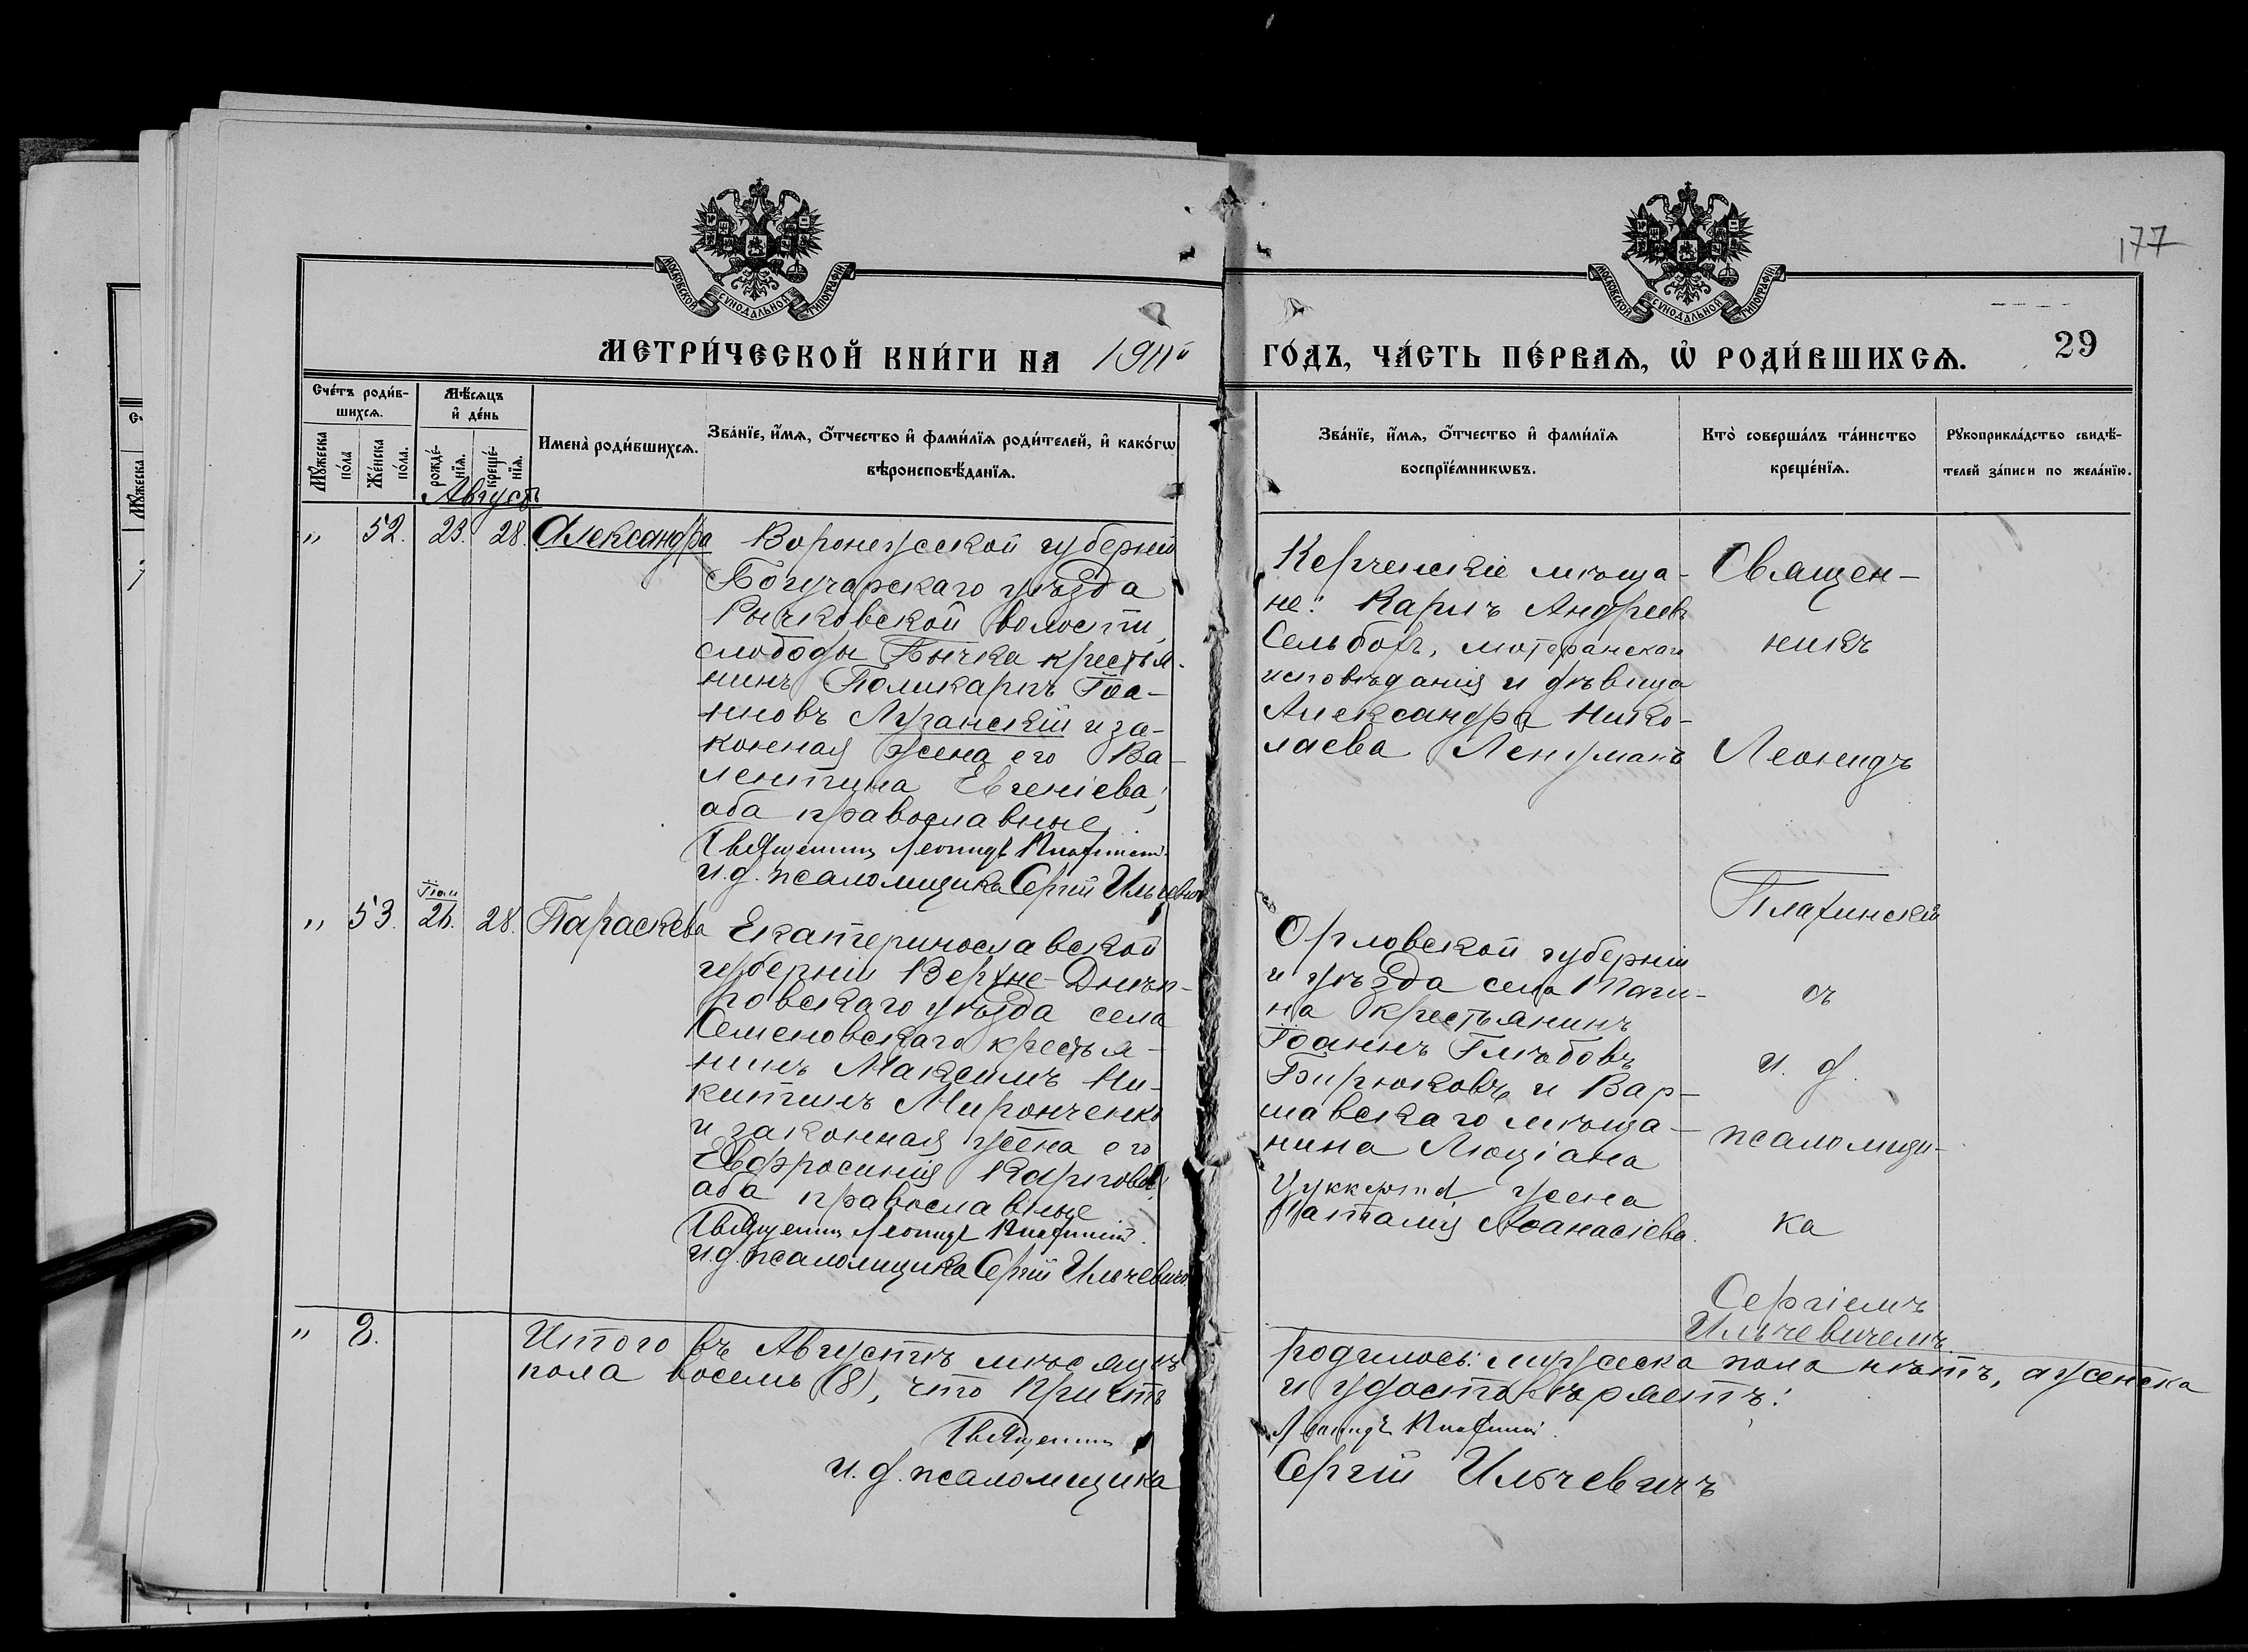 177
МОСКОВСКОЙ СУНОДАЛЬНОЙ ТИПОГРАФІИ
МОСКОВСКОЙ СУНОДАЛЬНОЙ ТИПОГРАФІИ
МЕТРИ́ЧЕСКОЙ КНИ́ГИ НА 1911й ГО́ДЪ, ЧА́СТЬ ПЕ́РВАѦ, Ѡ҆ РОДИ́ВШИХСѦ. 29
Сче́тъ роди́в-
шихсѧ.
Мꙋ́жеска по́ла
Же́нска по́ла.
Мѣ́сѧцъ
и҆ де́нь
рожде́-
нїѧ.
креще́-
нїѧ.
Имена̀ роди́вшихсѧ.
Зва́нїе, и҆́мѧ, ѻ҆́тчество и҆ фами́лїѧ роди́телей, и҆ како́гѡ
вѣроисповѣ́данїѧ.
Зва́нїе, и҆́мѧ, ѻ҆́тчество и҆ фами́лїѧ
воспрїе́мникѡвъ.
Кто̀ соверша́лъ та́инство
креще́нїѧ.
Рꙋкоприкла́дство свидѣ́-
телей за́писи по жела́нїю.
Августъ
" 52. 23. 28. Александра
Воронежской губерніи
Богучарскаго уѣзда
волости,
слободы Бычка крестья-
нинъ Поликарпъ Іоа-
нновъ Луганскій и за-
конная жена его Ва-
лентина Евгеніева,
оба православные.
Священникъ Леонидъ
и.д. псаломщика Сергій Ильчевичъ
Керченскіе мѣща-
не: Карлъ Андреевъ
Сельборъ, лютеранскаго
исповѣданія и дѣвица
Александра Нико-
лаева
Священ-
никъ
Леонидъ
" 53. Іюля 26. 28. Параскева
Екатеринославской
губерніи Верхне-Днѣп-
ровскаго уѣзда села
Семеновскаго крестья-
нинъ Максимъ Ни-
китинъ Миронченко
и законная жена его
Евфросинія Карпова,
оба православные
Священникъ Леонидъ
и.д. псаломщика Сергій Ильчевичъ
Орловской губерніи
и уѣзда села
на крестьянинъ
Іоаннъ Глѣбовъ
Бирюковъ и Вар-
шавскаго мѣща-
нина Люціана
жена
Наталія Аѳанасіева.
съ
и. д.
псаломщи-
ка
Сергіемъ
Ильчевичемъ.
" 8. Итого въ Августѣ мѣсяцѣ родилось: мужеска пола нѣтъ, а женска
пола восемь (8), что причтъ и удостовѣряетъ:
Священникъ Леонидъ
и. д. псаломщика Сергій Ильчевичъ